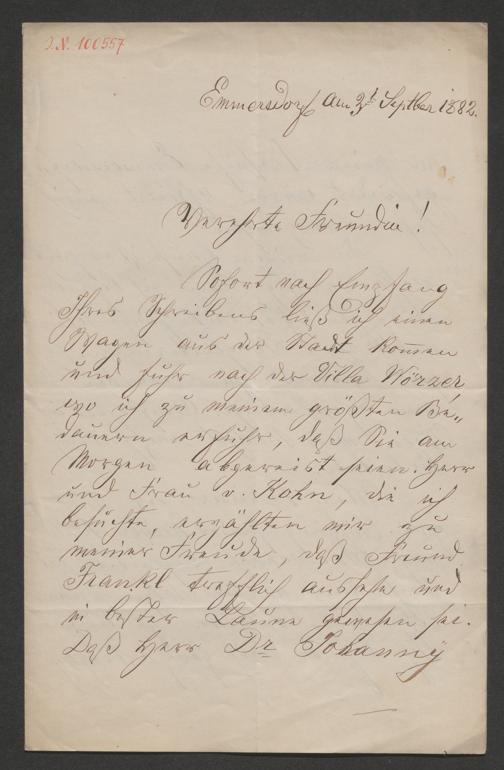 J.N. 100557
Emmersdorf am 21 Septber 1882.
Verehrte Freundin!
Sofort nach Empfang
Ihres Schreibens ließ ich einen
Wagen aus der Stadt kom̄en
und fuhr nach der Villa Wörzer
wo ich zu meinem größten Be„
dauern erfuhr, daß Sie am
Morgen abgereist seien. Herr
und Frau v. Kohn, die ich
besuchte, erzählten mir zu
meiner Freude, daß Freund
Frankl trefflich aussehe und
in bester Laune gewesen sei.
Daß Herr Dr Johanny